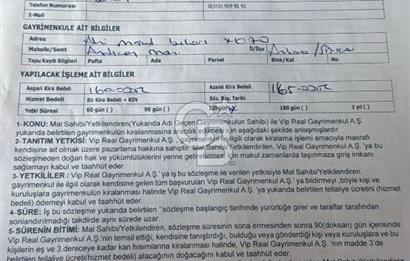 Telefon Numarası 0(312) 929 92 92
GAYRİMENKULE AİT BİLGİLER
Adres
Mahalle/Semt İl/İlçe
Tapu Kaydı Bilgileri Pafta Ada Parsel Blok/Kat No
YAPILACAK İŞLEME AİT BİLGİLER
Asgari Kira Bedeli 160.000 Azami Kira Bedeli 165.000
Hizmet Bedeli Bir Kira Bedeli + KDV Söz. Bşl. Tarihi
Yetki Süresi 60 gün ( ) 90 gün ( ) 120 180 gün ( ) 1 yıl ( )
1-KONU: Mal Sahibi/Yetkilendiren(Yukarıda Adı Geçen Gayrimenkulün Sahibi) ile Vip Real Gayrimenkul A.Ş.
yukarıda belirtilen gayrimenkulün kiralanmasına aracılık etmesi için aşağıdaki şekilde anlaşmışlardır
2- TANITIM YETKİSİ: Vip Real Gayrimenkul A.Ş., ilgili olarak kiralama işlemi amacıyla masrafı
kendisine ait olmak üzere pazarlama hakkına sahiptir. Mal Sahibi/Yetkilendiren, Vip Real Gayrimenkul A.Ş.'ya bu
sözleşmeden doğan hak ve yükümlülüklerini yerine getirmesi makul zamanlarda taşınmaza giriş imkanı
sağlamayı kabul ve taahhüt eder.
3- YETKİLİLER : Vip Real Gayrimenkul A.Ş.'ya iş bu sözleşme ile verilen yetkisiyle Mal Sahibi/Yetkilendiren,
gayrimenkul ile ilgili olarak kendisine gelen tüm başvuruları Vip Real Gayrimenkul A.Ş.'ya bildirmeyi, böyle kişi ve
kuruluşlara gayrimenkulün kiralanması halinde Vip Real Gayrimenkul A.Ş.'ya yukarıda belirtilen tellaliye ücretini (hizmet
bedeli) ödemeyi kabul ve taahhüt eder.
4- SÜRE: İş bu sözleşme yukarıda belirtilen sözleşme başlangıç tarihinde yürürlüğe girer ve taraflar tarafından
sonlandırılmadığı takdirde aynı sürede uzar.
5- SÜRENİN BİTİMİ: Mal Sahibi/Yetkilendiren, sözleşme süresinin sona ermesinden sonra 90(doksan) gün içerisinde
Vip Real Gayrimenkul A.Ş.'nin temsil ettiği, kendisine tanıştırdığı, bulduğu veya gönderdiği kişi veya kuruluşlara ve bu
kişilerin eş ve 3.dereceye kadar kan hısımlarına kiralanması halinde, Vip Real Gayrimenkul A.Ş.'nin madde 3'de
belirtilen tellaliye ücreti(hizmet bedeli) alacağının doğacağını kabul ve taahhüt eder.